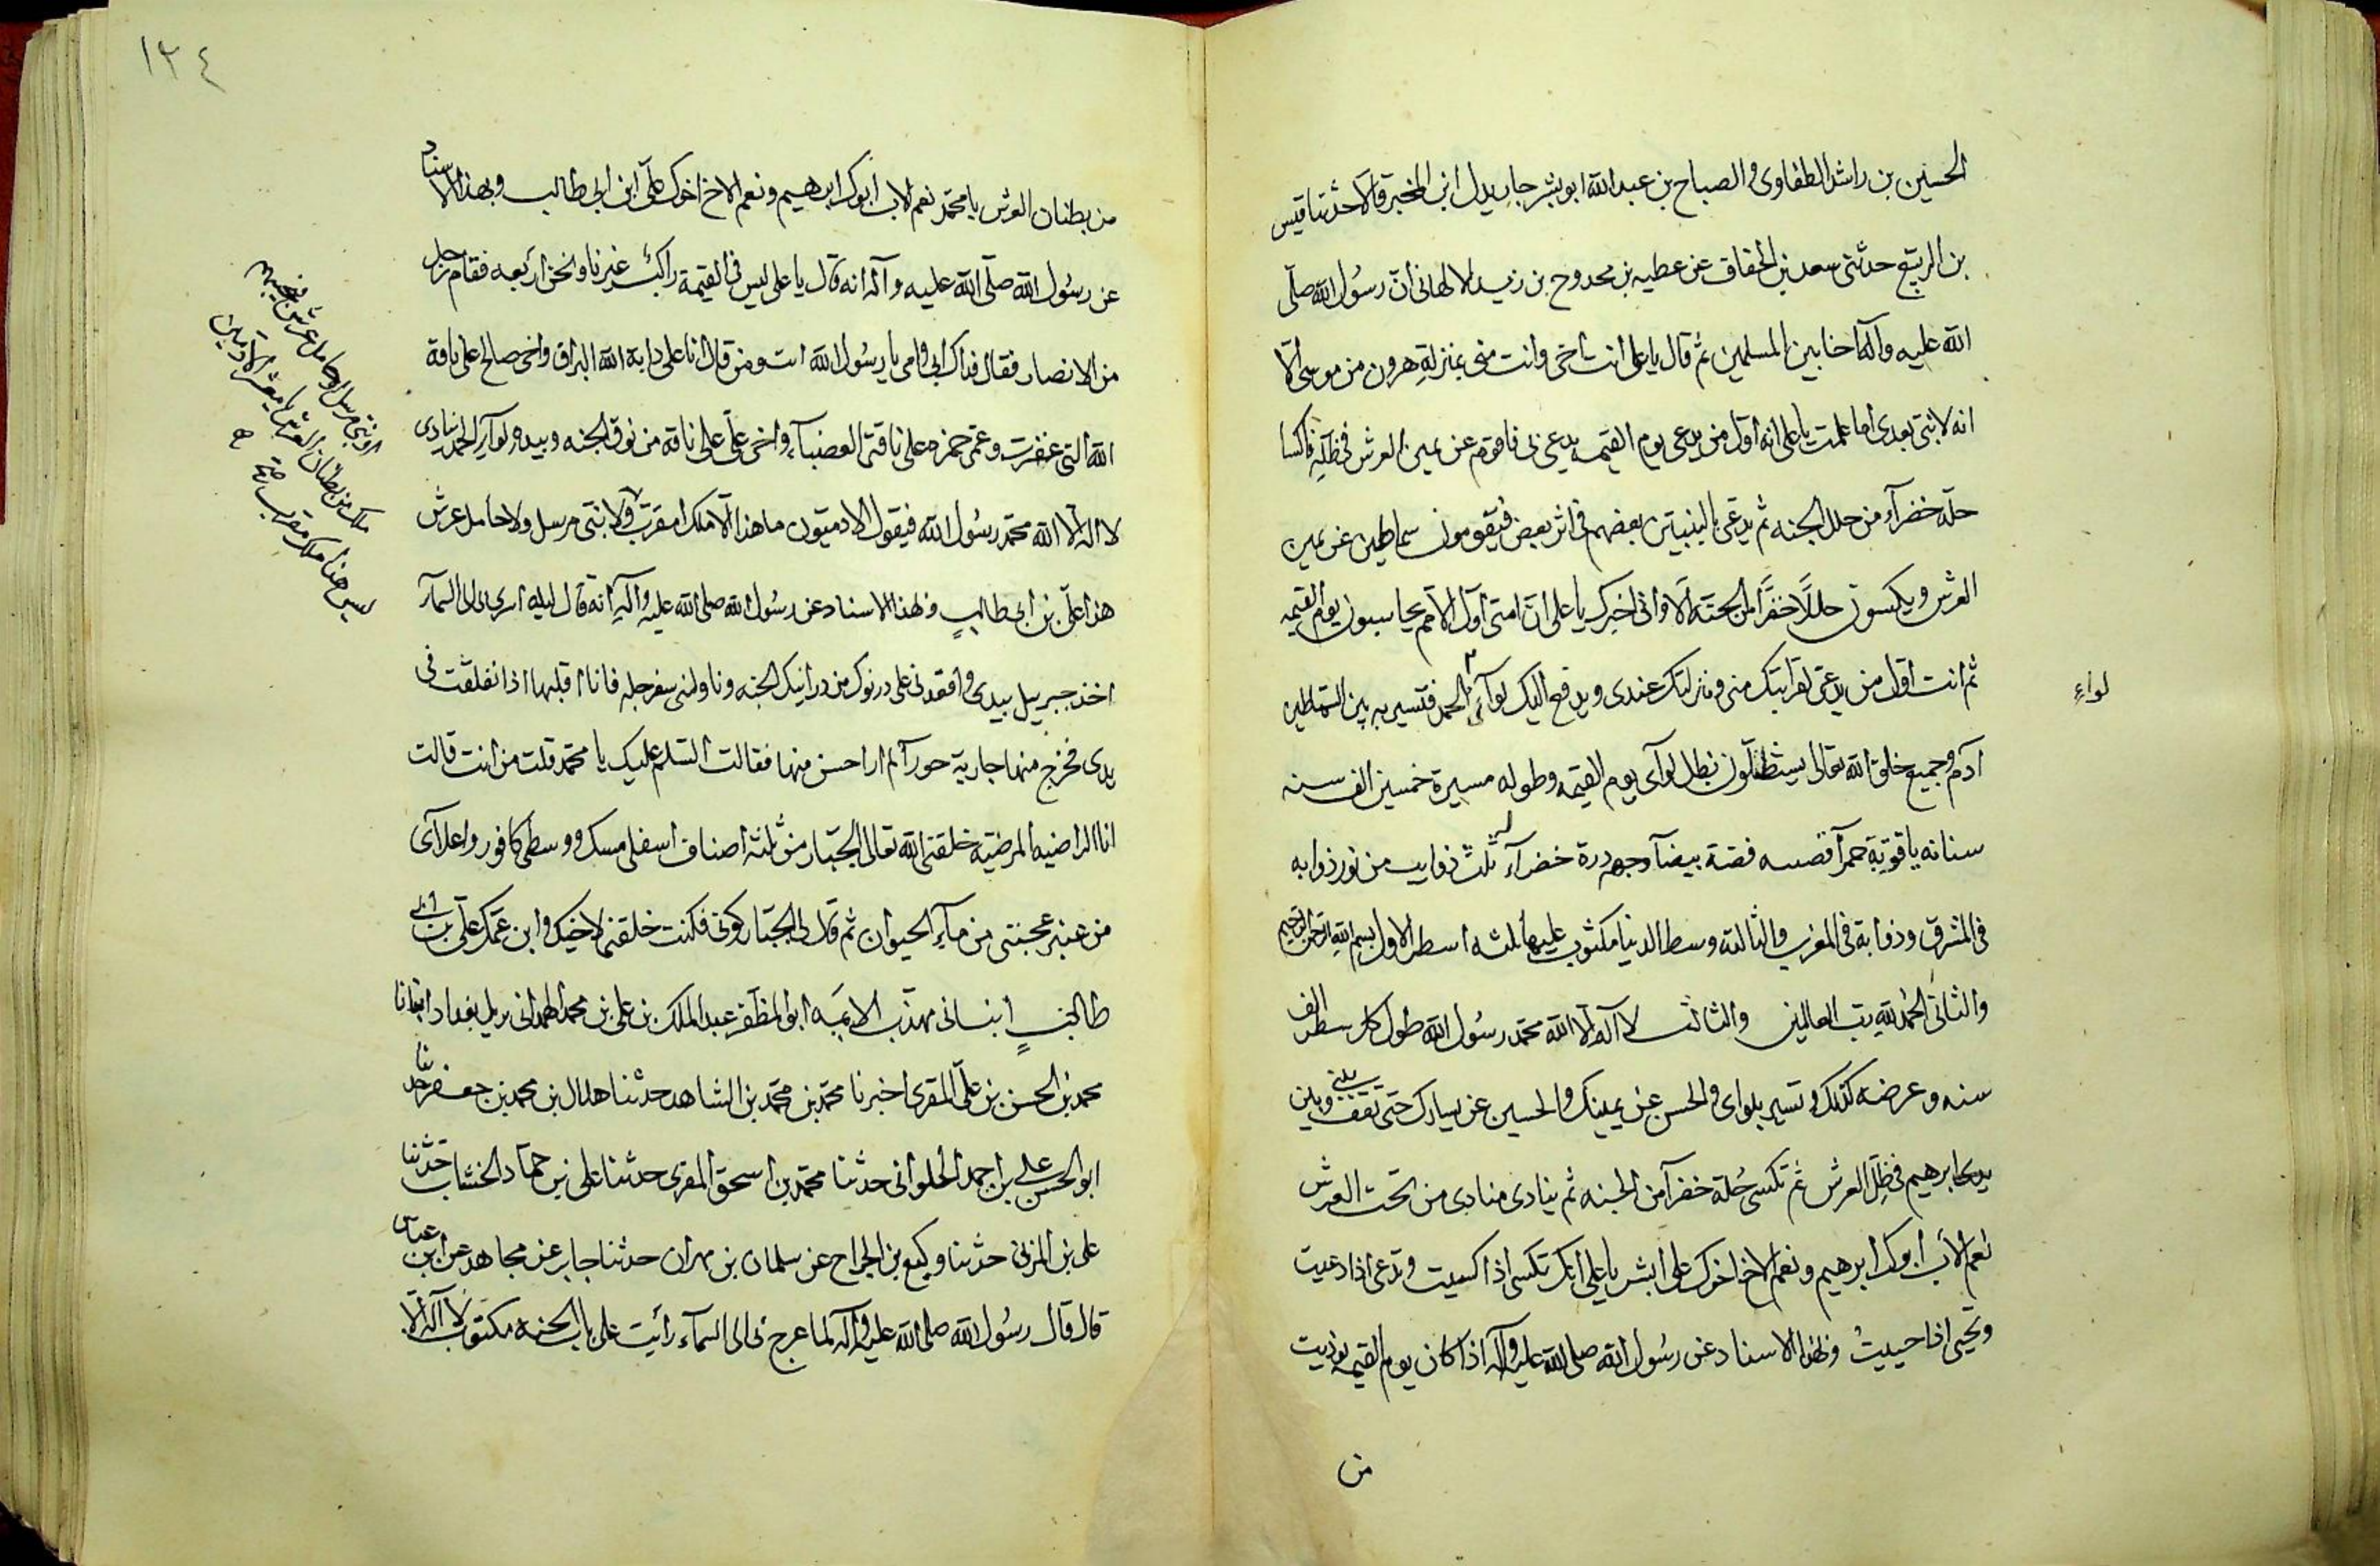 الحسين بن راشد الطفاوى و الصباح بن عبد الله ابو بشر جار بدل ابن المخبر قالا حدثنا قيس
بن الربيع حدثنى سعد بن الخفاف عن عطيه بن محدوح بن زيد الالهانى انّ رسُول الله صلّى
الله عليه وآله اخا بين المسلمين ثم قال يا على انت اخى وانت منى بمنزلةِ هرون من موسى الّا
انه لا نبى بعدى اما علمت يا على انه اول من يدعى يوم القيمه يدعى بى فاقوم عن يمين العرش فى ظلّه فاكسا
حلّه خضرآء من حلل الجنه ثم يدعى بالنبيّين بعضهم فى اثر بعض فيقومون سماطين عن يمين
العرش و يكسون حللًا خضرًا من الجنّه الَا وانى اخبرك يا على انّ امتى اول الامم يحاسبون يوم القيمه
ثم انت اوّل من يدعى لقرابتك منى ومنزلتك عندى ويدفع اليك لوآئى الحمد فتسير به بين السّماطين
لواءِ
آدم وجميع خلق الله تعالى يستظلّون بظل لوآى يوم القيمه وطوله مسيرة خمسين الف سنه
سنانه ياقوتة حمرآ قصبه فضة بيضآ وجهه درة خضرآء له ثلث ذوايب من نور ذوابه
فى المشرق و ذوابة فى المغرب والثالثه وسط الدنيا مكتوب عليها ثلثه اسطر الاول بسم الله الرحمن الرحيم
والثانى الحمد لله رب العالمين والثالث لا اله الّا الله محمد رسُول الله طول كل سطر الف
سنه و عرضه كذلك و تسير بلواى والحسن عن يمينك والحسين عن يسارك حتى تقف بينى وبين
يدى ابرهيم فى ظلّ العرش ثم تكسى حُلة خضرآ من الجنه ثم ينادى منادى من تحت العرش
نعم الاب ابوك ابرهيم ونعم الاخ اخوك على ابشر يا على انك تكسى اذا كسيت وتدعى اذا دعيت
وتحيى اذا حييتُ وبهذا الاسناد عن رسُول الله صلى الله عليه وآله اذا كان يوم القيمه نوديت
من
١٣٤
من بطنان العرش يا محمّد نعم الاب ابوك ابرهيم ونعم الاخ اخوك علّى ابن ابى طالب وبهذا الاسناد
عن رسُول الله صلّى الله عليه وآله انه قال يا على ليس فى القيمة راكب غيرنا ونحن اربعه فقام رجل
من الانصار فقال فداك ابى وامى يا رسُول الله انت ومن قال انا على دابة الله البراق واخى صالح على ناقة
الله التى عقرت وعمى حمزه على ناقتى العضبآء واخى علّى على ناقه من نوق الجنه وبيده لوآء الحمد ينادى
لا اله الّا الله محمّد رسُول الله فيقول الادميّون ما هذا الّا ملك مقرب ولا نبى مرسل ولا حامل عرش
هذا علّى بن ابى طالبٍ وبهذا الاسناد عن رسُول الله صلى الله عليه وآلهِ انه قال ليله اسرى بى الى السمآء
اخذ جبرييل بيدى واقعدنى على درنوك من درانيك الجنه وناولنى سفرجله فانا اقلبها اذا نفلقت فى
يدى فخرج منها جارية حورآ لم ار احسن منها فقالت السّلم عليك يا محمّد قلت من انت قالت
انا الراضيه المرضيّه خلقنى الله تعالى الجبّار من ثلثه اصناف اسفلى مسك ووسطى كافور واعلاى
من عنبر عجنتى من مآء الحيوان ثم قال لى الجبّار كونى فكنت خلقنى لاخيك وابن عمّك علّى بن ابى
طالبٍ انبانى مهذّب الايمّه ابو المظفّر عبد الملك بن على بن محمد الهمدانى نزيل بغداد انبانا
محمد بن الحسن بن علّى المقرى اخبرنا محمّد بن محمّد بن الشاهد حدثنا هلال بن محمد بن جعفر حدثنا
ابو الحسن على بن احمد الحلوانى حدثنا محمّد بن اسحق المقرى حدثنا على بن حمّاد الخشاب حدّثنا
على بن المزنى حدثنا وكيع بن الجراح عن سلمان بن مهران حدثنا جابر عن مجاهد عن ابن عباس
قال قال رسُول الله صلى الله عليه وآله لما عرج بى الى السمآء رأيت على باب الجنه مكتوب لا اله الّا
او نبى مرسل او حامل عرش فيجيبهم
ملك من بطنان العرش يا معشر الآدميين
ليس هذا ملك مقرب صح